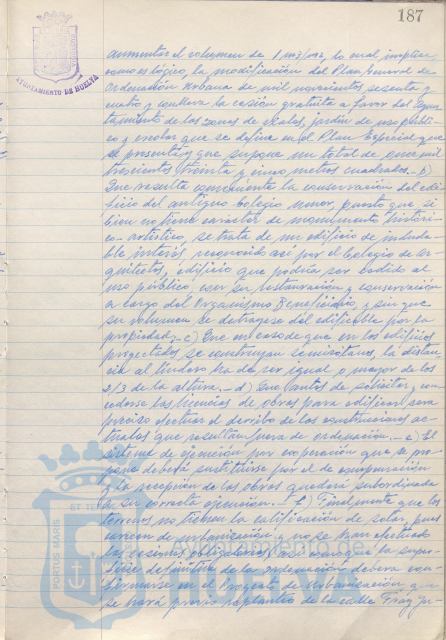 187
AYUNTAMIENTO DE HUELVA
aumentar el volumen de 1 m3/m2, lo cual implica,
como es lógico, la modificación del Plan General de
Ordenación Urbana de mil novecientos sesenta y
cuatro y conlleva la cesión gratuita a favor del Ayun-
tamiento de las zonas de viales, jardín de uso públi-
co y escolar que se define en el Plan Especial que
se presenta y que supone un total de once mil
trescientos treinta y cinco metros cuadrados.- b)
Que resulta conveniente la conservación del edi-
ficio del antiguo Colegio menor, puesto que si
bien no tiene carácter de monumento históri-
co-artístico, se trata de un edificio de induda-
ble interés, reconocido así por el Colegio de Ar-
quitectos, edificio que podría ser cedido al
uso público, con su restauración y conservación
a cargo del Organismo Beneficiario, y sin que
su volumen se detrayese del edificable por la
propiedad.- c) Que en caso de que en los edificios
proyectados se construyan semisótanos, la distan-
cia al lindero ha de ser igual o mayor de los
2/3 de la altura.- d) Que antes de solicitar y con-
cederse las licencias de obras para edificar será
preciso efectuar el derribo de las construcciones ac-
tuales que resultan fuera de ordenación.- e) El
sistema de ejecución por cooperación que se pro-
pone deberá sustituirse por el de compensación
y la recepción de las obras quedará subordinada
a su correcta ejecución.- f) Finalmente que los
terrenos no tienen la calificación de solar, pues
carecen de urbanización y no se han efectuado
las cesiones obligatorias, así como que la super-
ficie definitiva de la ordenación deberá con-
firmarse en el Proyecto de Urbanización que
se hará previo replanteo de la calle Fray Ju-
PORTUS MARIS ET TERRAE
Ayuntamiento de
HUELVA